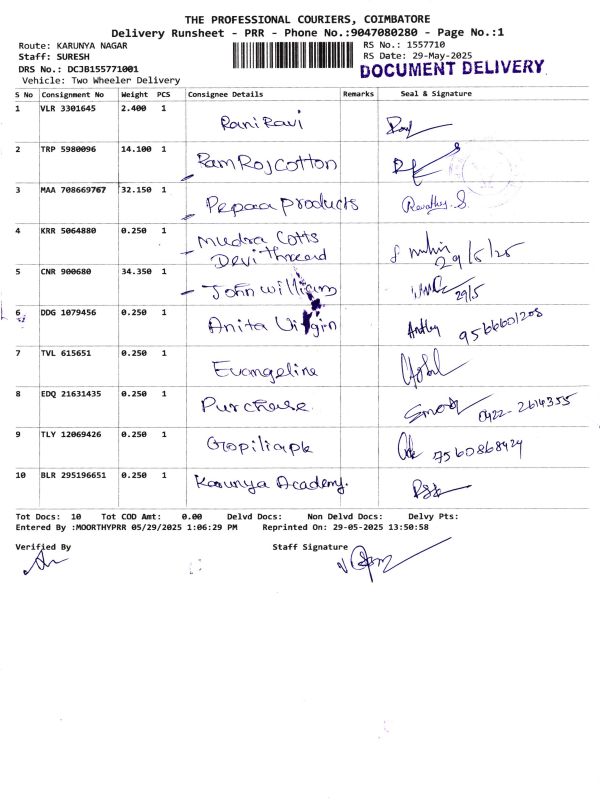 THE PROFESSIONAL COURIERS, COIMBATORE
Delivery Runsheet - PRR - Phone No.:9047080280 - Page No.:1
Route: KARUNYA NAGAR
RS No.: 1557710
Staff: SURESH
RS Date: 29-May-2025
DRS No.: DCJB155771001
DOCUMENT DELIVERY
Vehicle: Two Wheeler Delivery
S No Consignment No Weight PCS Consignee Details Remarks Seal & Signature
1 VLR 3301645 2.400 1 Rani Ravi
2 TRP 5980096 14.100 1 Ram Roj cotton
3 MAA 708669767 32.150 1 Pepaa Products Revathy.S.
4 KRR 5064880 0.250 1 Mudra Cotts
Devi thread 29/5/25
5 CNR 900680 34.350 1 John William 29/5
6 DDG 1079456 0.250 1 Anita Virgin 9566601208
7 TVL 615651 0.250 1 Evangeline
8 EDQ 21631435 0.250 1 Purchase 0422-2614355
9 TLY 12069426 0.250 1 7560868424
10 BLR 295196651 0.250 1 Karunya Academy.
Tot Docs: 10 Tot COD Amt: 0.00 Delvd Docs: Non Delvd Docs: Delvy Pts:
Entered By :MOORTHYPRR 05/29/2025 1:06:29 PM Reprinted On: 29-05-2025 13:50:58
Verified By Staff Signature